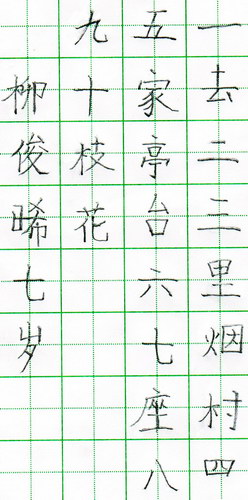 一去二三里烟村四
五家亭台六七座八
九十枝花
柳俊晞七岁